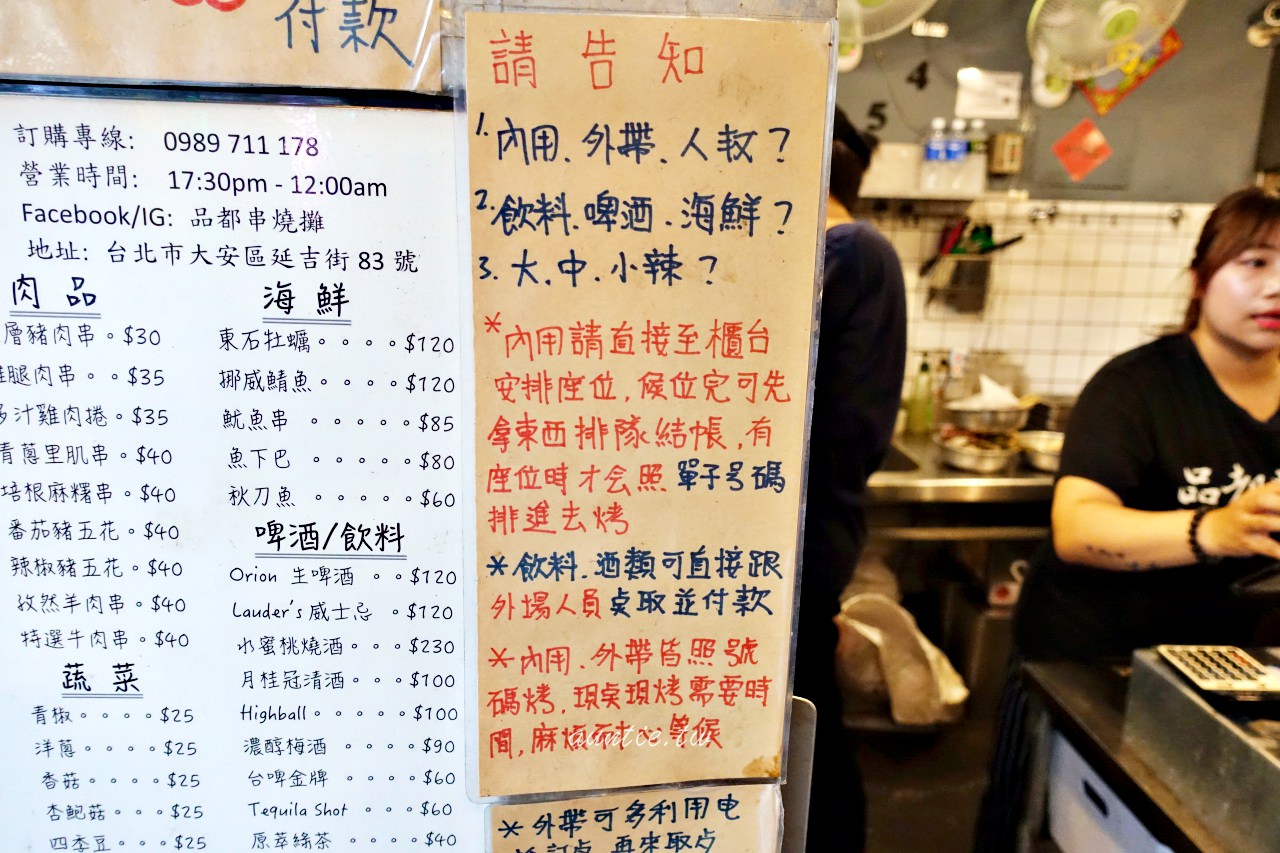 付款
訂購專線: 0989 711 178
營業時間: 17:30pm - 12:00am
Facebook/IG: 品都串燒攤
地址: 台北市大安區延吉街 83 號
肉 品
層豬肉串。$30
腿肉串。。$35
多汁雞肉捲。$35
青蔥里肌串。$40
培根麻糬串。$40
番茄豬五花。$40
辣椒豬五花。$40
孜然羊肉串。$40
特選牛肉串。$40
蔬 菜
青椒。。。。$25
洋蔥。。。。$25
香菇。。。。$25
杏鮑菇。。。$25
四季豆。。。$25
海 鮮
東石牡蠣。。。。$120
挪威鯖魚。。。。$120
魷魚串 。。。。。$85
魚下巴 。。。。。$80
秋刀魚 。。。。。$60
啤酒/飲料
Orion 生啤酒 。。$120
Lauder's 威士忌 。$120
水蜜桃燒酒。。。$230
月桂冠清酒。。。$100
Highball。。。。。$100
濃醇梅酒 。。。。$90
台啤金牌 。。。。$60
Tequila Shot 。。。$60
原萃綠茶 。。。。$40
請 告 知
1. 內用. 外帶. 人数?
2. 飲料. 啤酒. 海鮮?
3. 大. 中. 小辣?
*內用請直接至櫃台
安排座位, 候位完可先
拿東西排隊結帳, 有
座位時才会照單子号碼
排進去烤
*飲料. 酒類可直接跟
外場人員点取並付款
*內用. 外帶皆照號
碼烤, 現点現烤需要時
間, 麻煩耐心等候
*外帶可多利用电
再來取点
4
5
品都